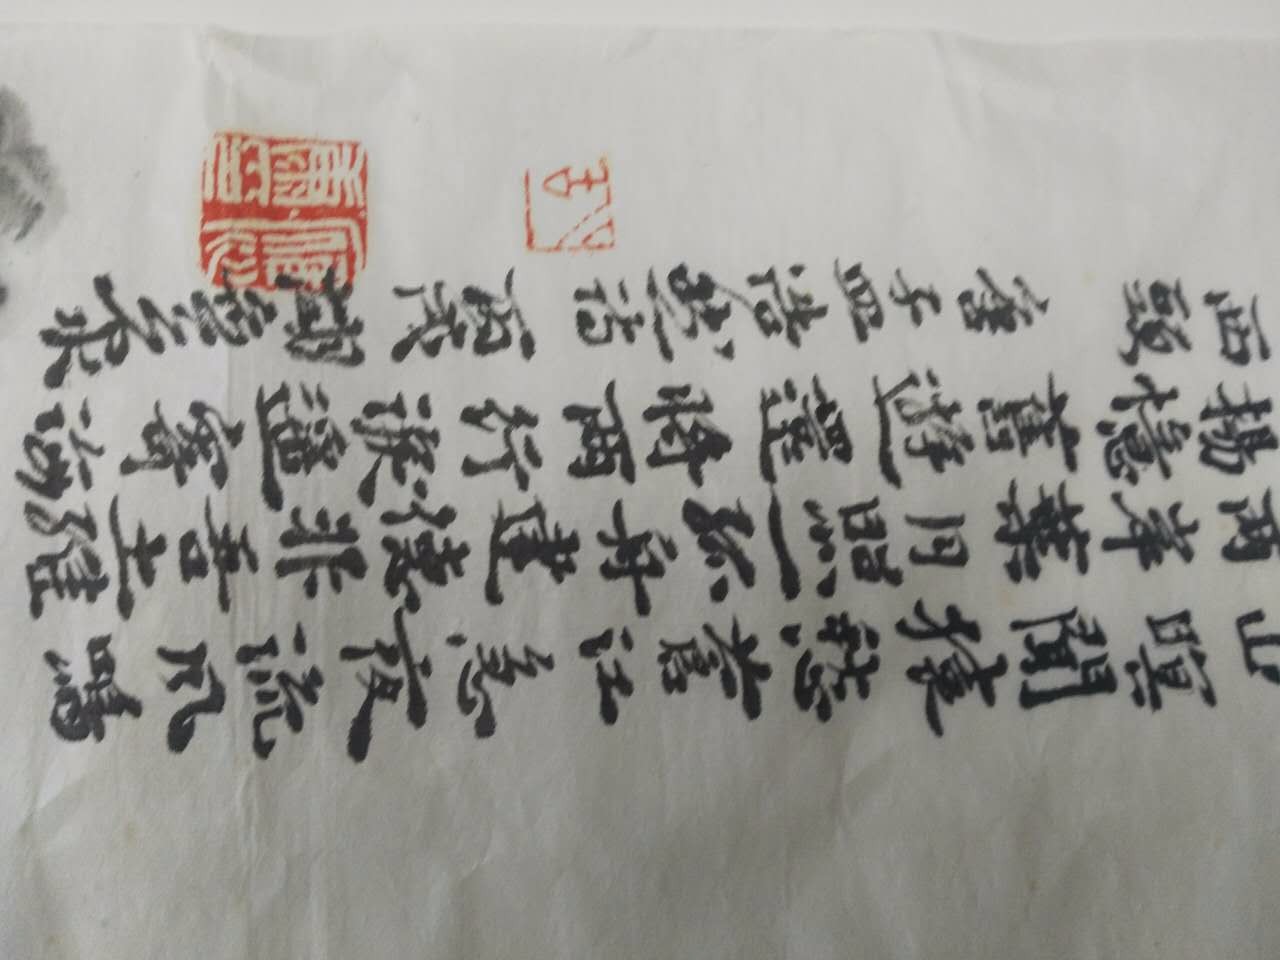 山暝聞猿愁蒼江急夜流風鳴
兩岸葉月照一孤舟建德非吾土維
揚憶舊遊還將兩行淚遙寄海
西頭 孟浩然詩